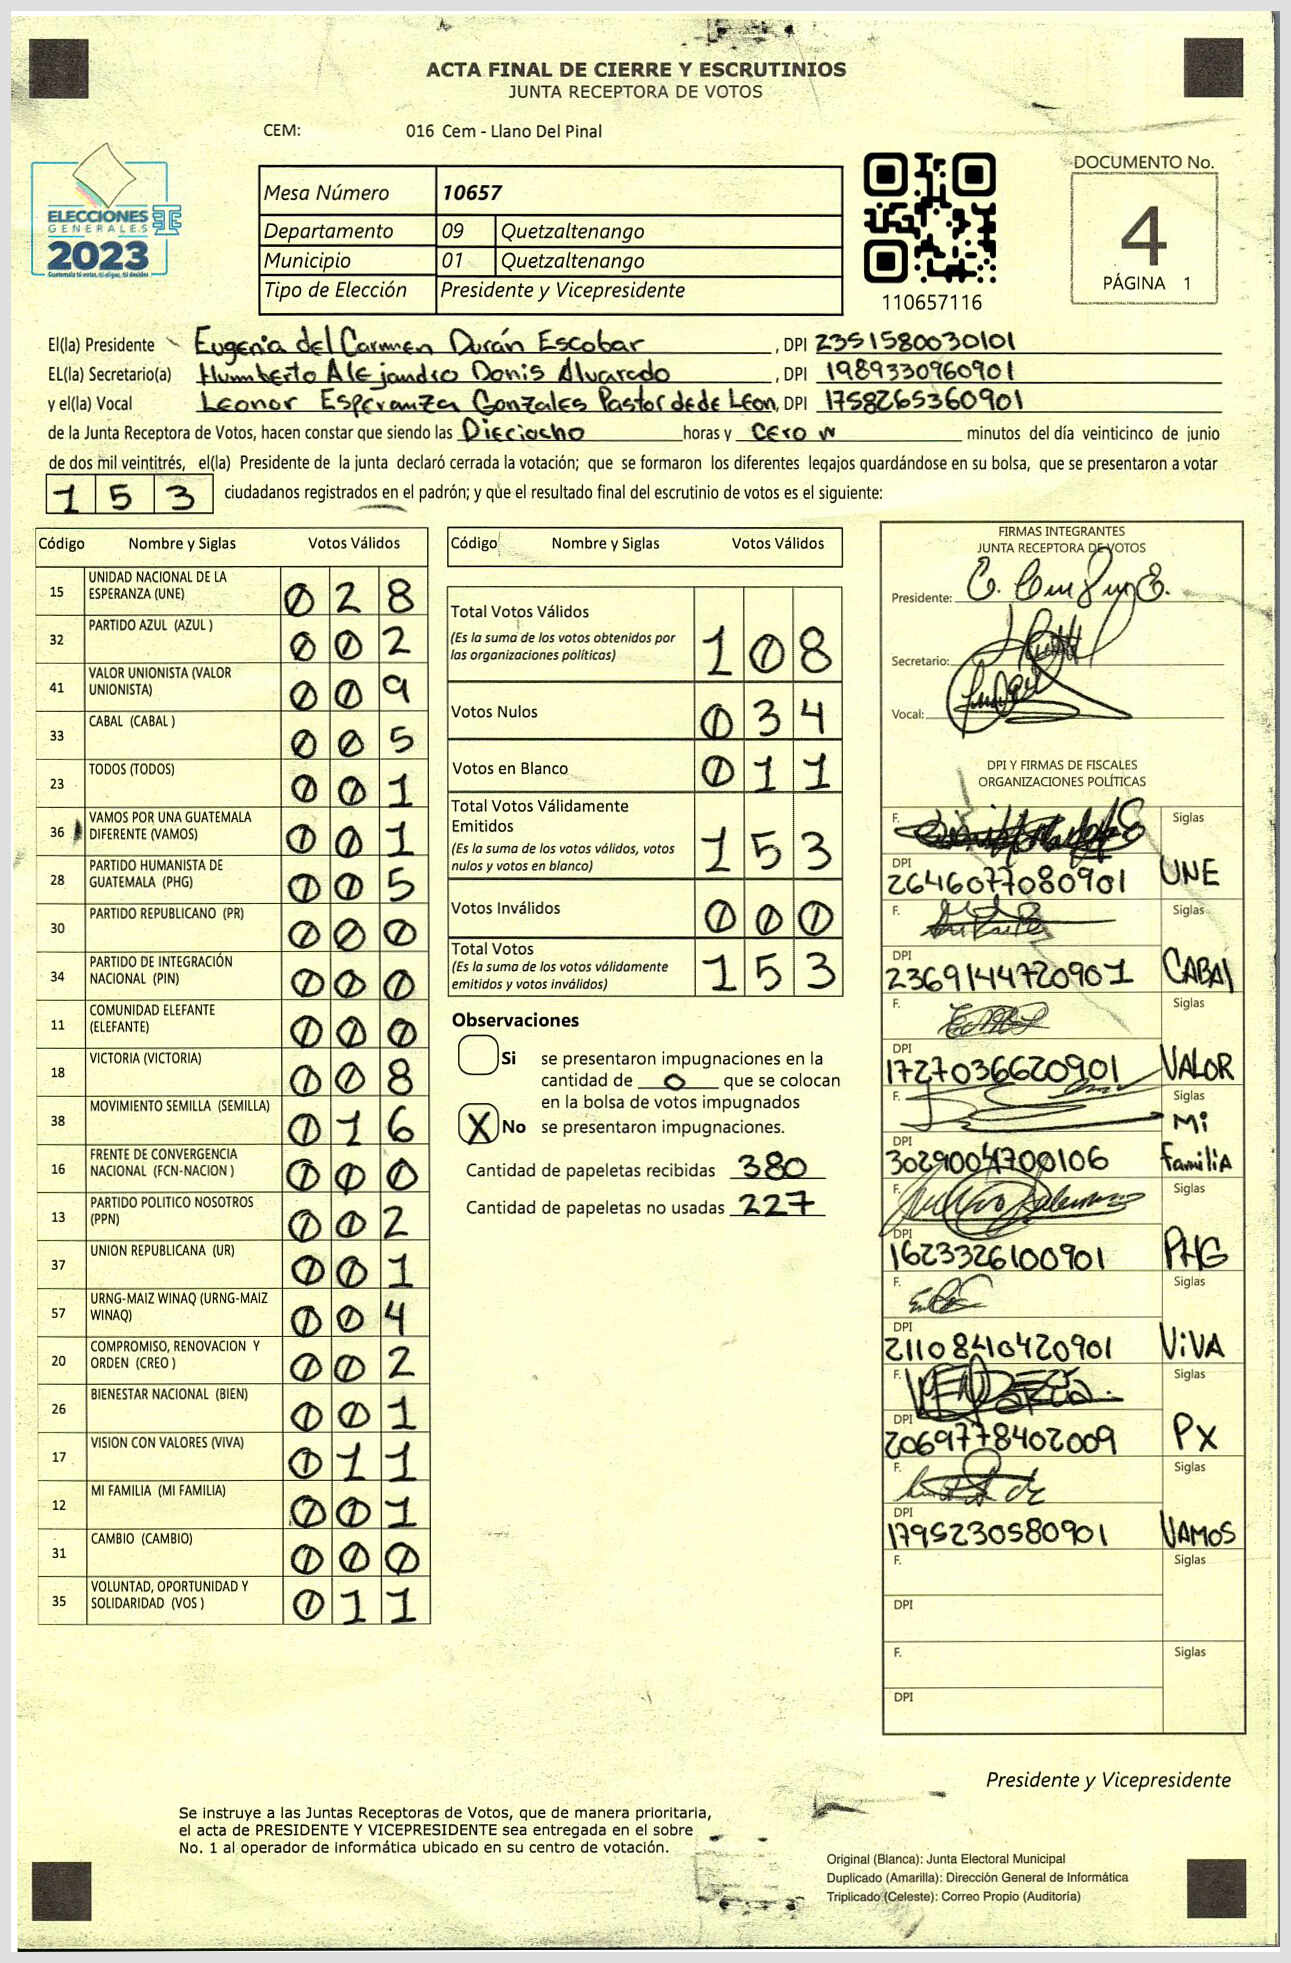 ACTA FINAL DE CIERRE Y ESCRUTINIOS
JUNTA RECEPTORA DE VOTOS
CEM: 016 Cem - Llano Del Pinal
ELECCIONES
GENERALES
2023
Mesa Número 10657
Departamento 09 Quetzaltenango
Municipio 01 Quetzaltenango
Tipo de Elección Presidente y Vicepresidente
110657116
DOCUMENTO No.
4
PÁGINA 1
El(la) Presidente Eugenia del Carmen Durán Escobar, DPI 2351580030101
EL(la) Secretario(a) Humberto Alejandro Donis Alvarado, DPI 1989330960901
y el(la) Vocal Leonor Esperanza Gonzales Pastor de de Leon, DPI 1758265360901
de la Junta Receptora de Votos, hacen constar que siendo las Dieciocho horas y cero minutos del día veinticinco de junio
de dos mil veintitrés, el(la) Presidente de la junta declaró cerrada la votación; que se formaron los diferentes legajos quardándose en su bolsa, que se presentaron a votar
153 ciudadanos registrados en el padrón; y que el resultado final del escrutinio de votos es el siguiente:
Código Nombre y Siglas Votos Válidos
15 UNIDAD NACIONAL DE LA ESPERANZA (UNE) 028
32 PARTIDO AZUL (AZUL ) 002
41 VALOR UNIONISTA (VALOR UNIONISTA) 009
33 CABAL (CABAL ) 005
23 TODOS (TODOS) 001
36 VAMOS POR UNA GUATEMALA DIFERENTE (VAMOS) 001
28 PARTIDO HUMANISTA DE GUATEMALA (PHG) 005
30 PARTIDO REPUBLICANO (PR) 000
34 PARTIDO DE INTEGRACIÓN NACIONAL (PIN) 000
11 COMUNIDAD ELEFANTE (ELEFANTE) 000
18 VICTORIA (VICTORIA) 008
38 MOVIMIENTO SEMILLA (SEMILLA) 016
16 FRENTE DE CONVERGENCIA NACIONAL (FCN-NACION ) 000
13 PARTIDO POLITICO NOSOTROS (PPN) 002
37 UNION REPUBLICANA (UR) 001
57 URNG-MAIZ WINAQ (URNG-MAIZ WINAQ) 004
20 COMPROMISO, RENOVACION Y ORDEN (CREO ) 002
26 BIENESTAR NACIONAL (BIEN) 001
17 VISION CON VALORES (VIVA) 011
12 MI FAMILIA (MI FAMILIA) 001
31 CAMBIO (CAMBIO) 000
35 VOLUNTAD, OPORTUNIDAD Y SOLIDARIDAD (VOS ) 011
Código Nombre y Siglas Votos Válidos
Total Votos Válidos 108
(Es la suma de los votos obtenidos por
las organizaciones políticas)
Votos Nulos 034
Votos en Blanco 011
Total Votos Válidamente
Emitidos 153
(Es la suma de los votos válidos, votos
nulos y votos en blanco)
Votos Inválidos 000
Total Votos 153
(Es la suma de los votos válidamente
emitidos y votos inválidos)
Observaciones
Si se presentaron impugnaciones en la
cantidad de 0 que se colocan
en la bolsa de votos impugnados
X No se presentaron impugnaciones.
Cantidad de papeletas recibidas 380
Cantidad de papeletas no usadas 227
FIRMAS INTEGRANTES
JUNTA RECEPTORA DE VOTOS
Presidente:
Secretario:
Vocal:
DPI Y FIRMAS DE FISCALES
ORGANIZACIONES POLÍTICAS
F. Siglas
DPI
2646077080901 UNE
F. Siglas
DPI
2369144720901 CABAl
F. Siglas
DPI
1727036620901 VALOR
F. Siglas
Mi
DPI
3029004700106 familiA
F. Siglas
DPI
1623326100901 PHG
F. Siglas
DPI
2110840420901 ViVA
F. Siglas
DPI
2069778402009 PX
F. Siglas
DPI
1795230580901 VAMOS
F. Siglas
DPI
F. Siglas
DPI
Presidente y Vicepresidente
Se instruye a las Juntas Receptoras de Votos, que de manera prioritaria,
el acta de PRESIDENTE Y VICEPRESIDENTE sea entregada en el sobre
No. 1 al operador de informática ubicado en su centro de votación.
Original (Blanca): Junta Electoral Municipal
Duplicado (Amarilla): Dirección General de Informática
Triplicado (Celeste): Correo Propio (Auditoría)